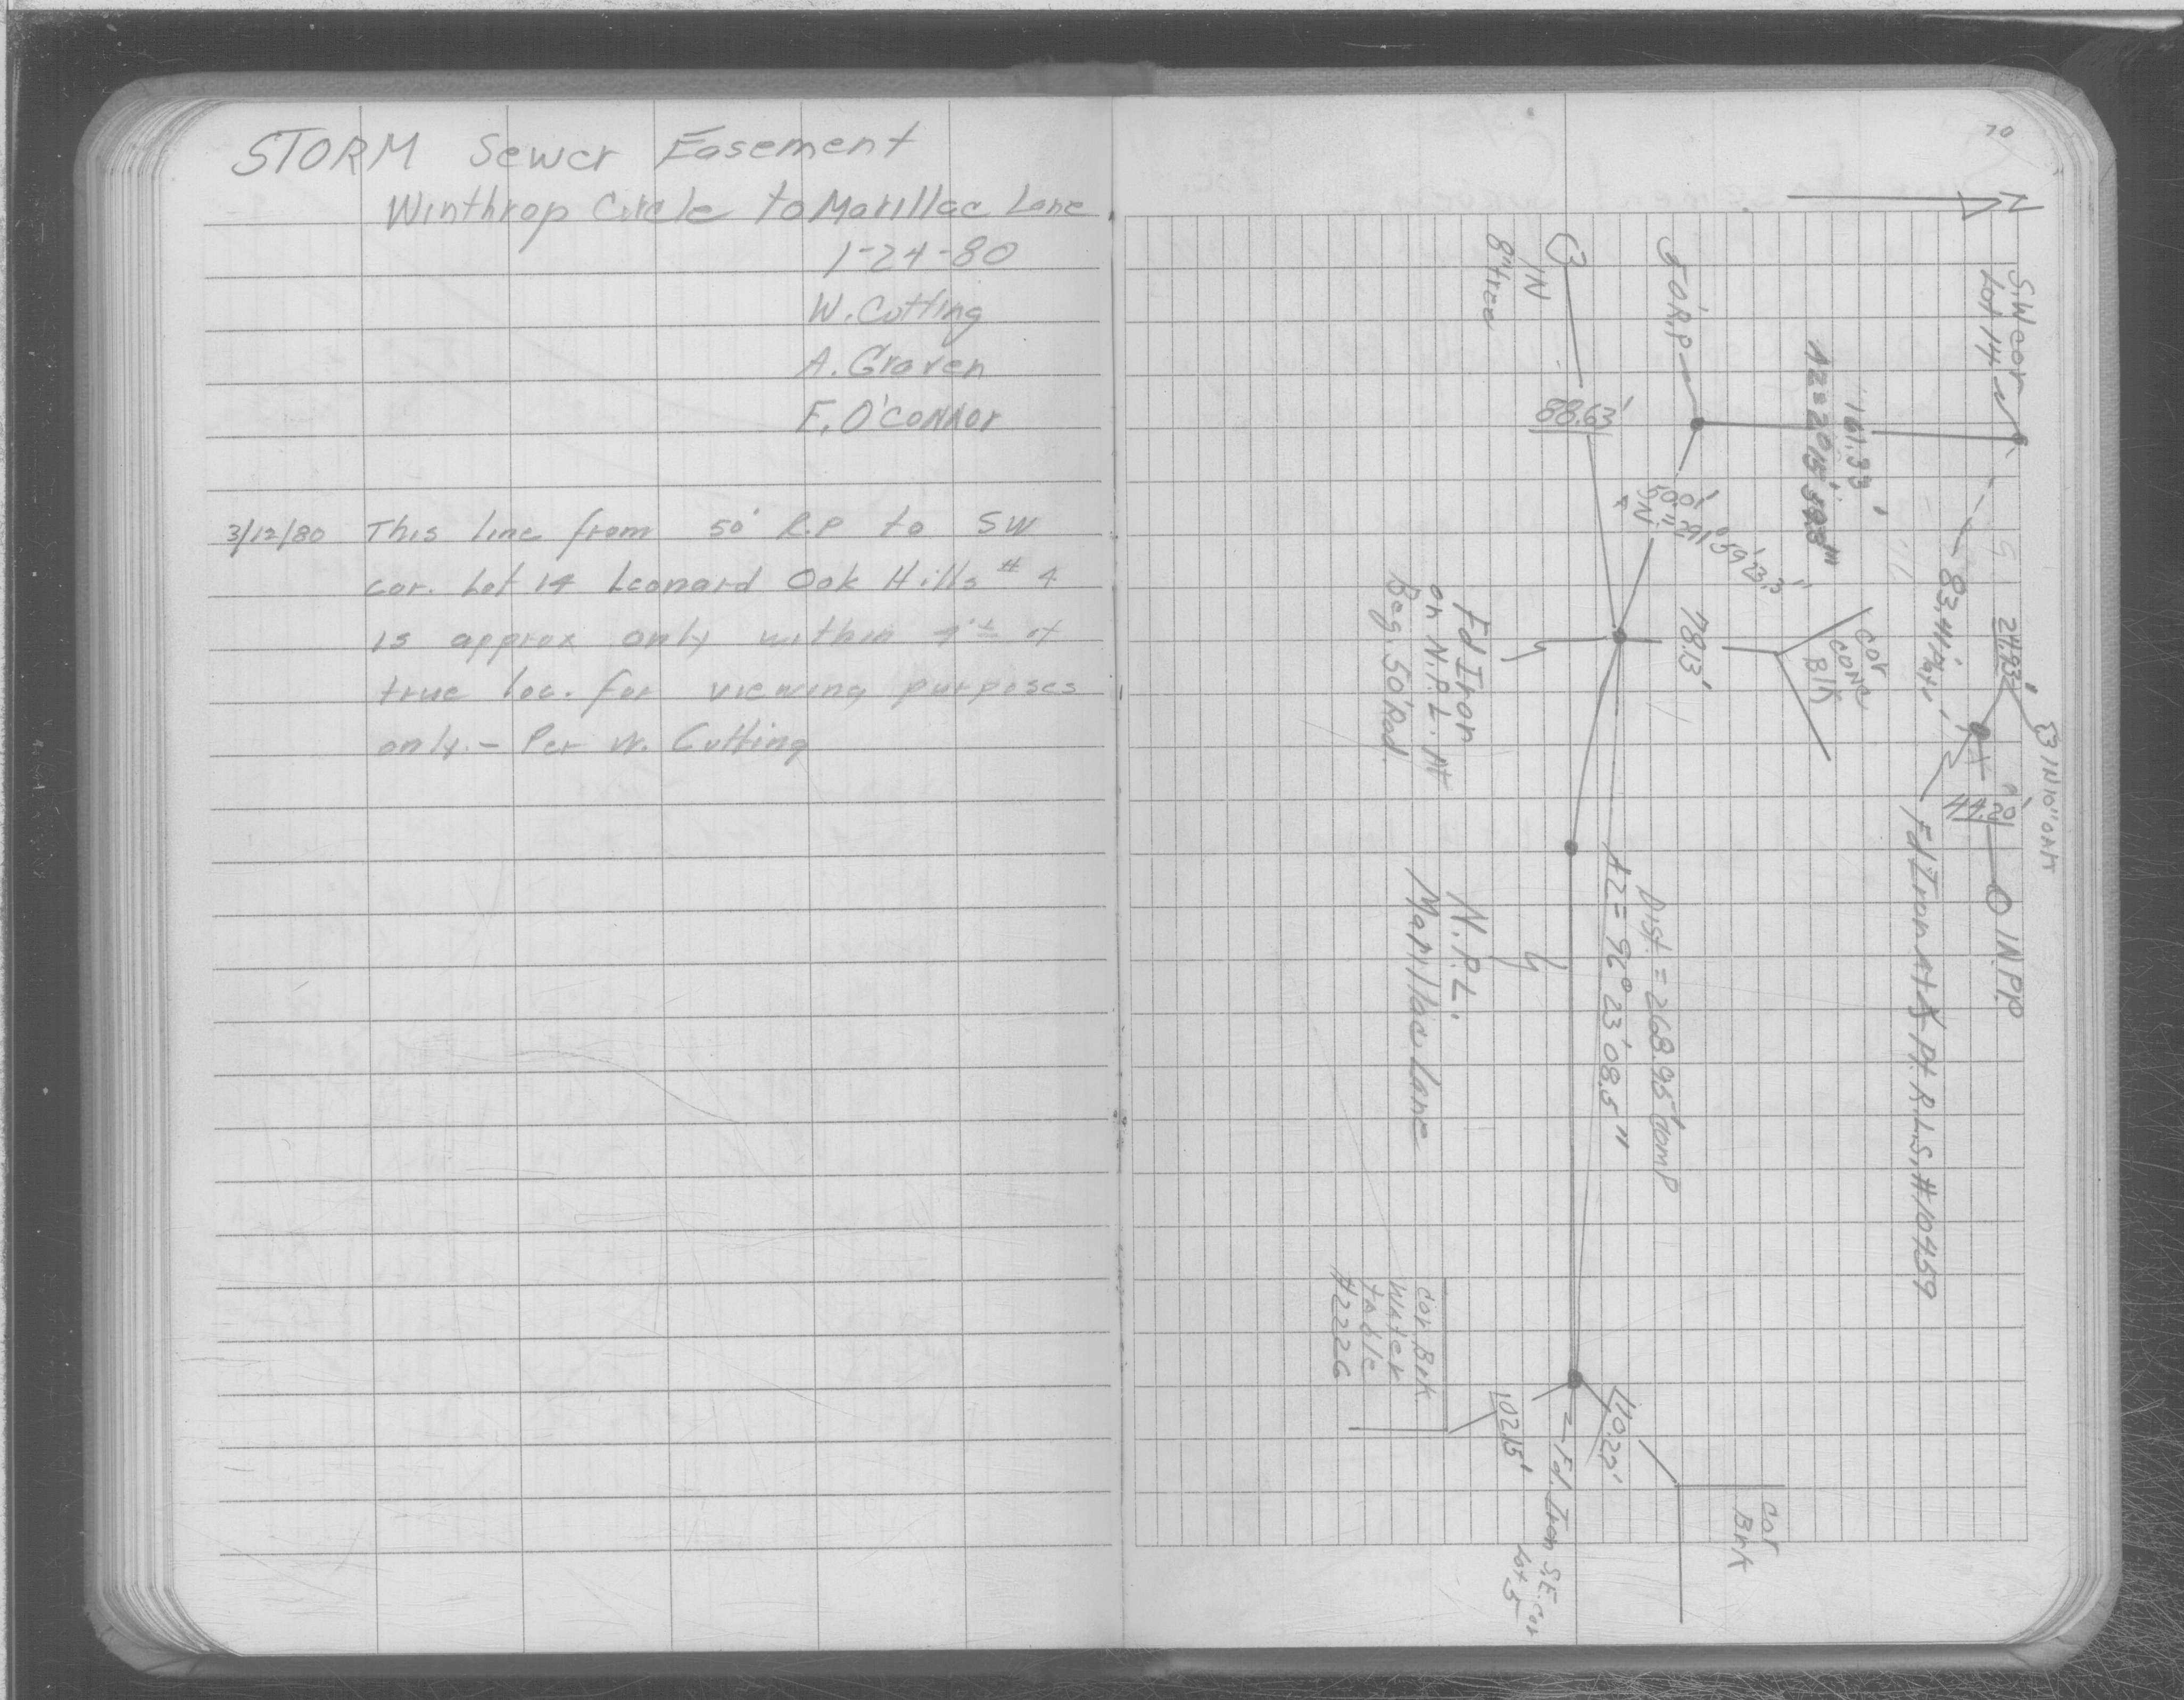 STORM Sewer Easement
Winthrop Circle to Marillac Lane
1-24-80
W. Cutting
A. Graven
F. O'CONNOR
3/12/80 This line from 50' R.P to SW
cor. Lot 14 Leonard Oak Hills #4
is approx only within
true loc. for viewing purposes
only. - Per W. Cutting
70
N
SW cor
Lot 14
50' R.P
IN
8" tree
88.63'
161.33'
50.0'
291° 59' 23.3"
78.13'
Cor
Conc
Blk
Fd Iron
on N.P.L. At
Beg. 50' Rad.
83.44'
24.93'
IN 10" OAK
44.20'
IN P.P
Fd Iron At Pt. R.L.S. #10459
N.P.L.
Marillac Lane
Dist. = 268.95' Comp
AZ = 96° 23' 08.5"
Cor. Brk.
Water
table
#2226
102.15'
110.22'
Fd. Iron S.E. Cor
Lot 5
Cor
Brk